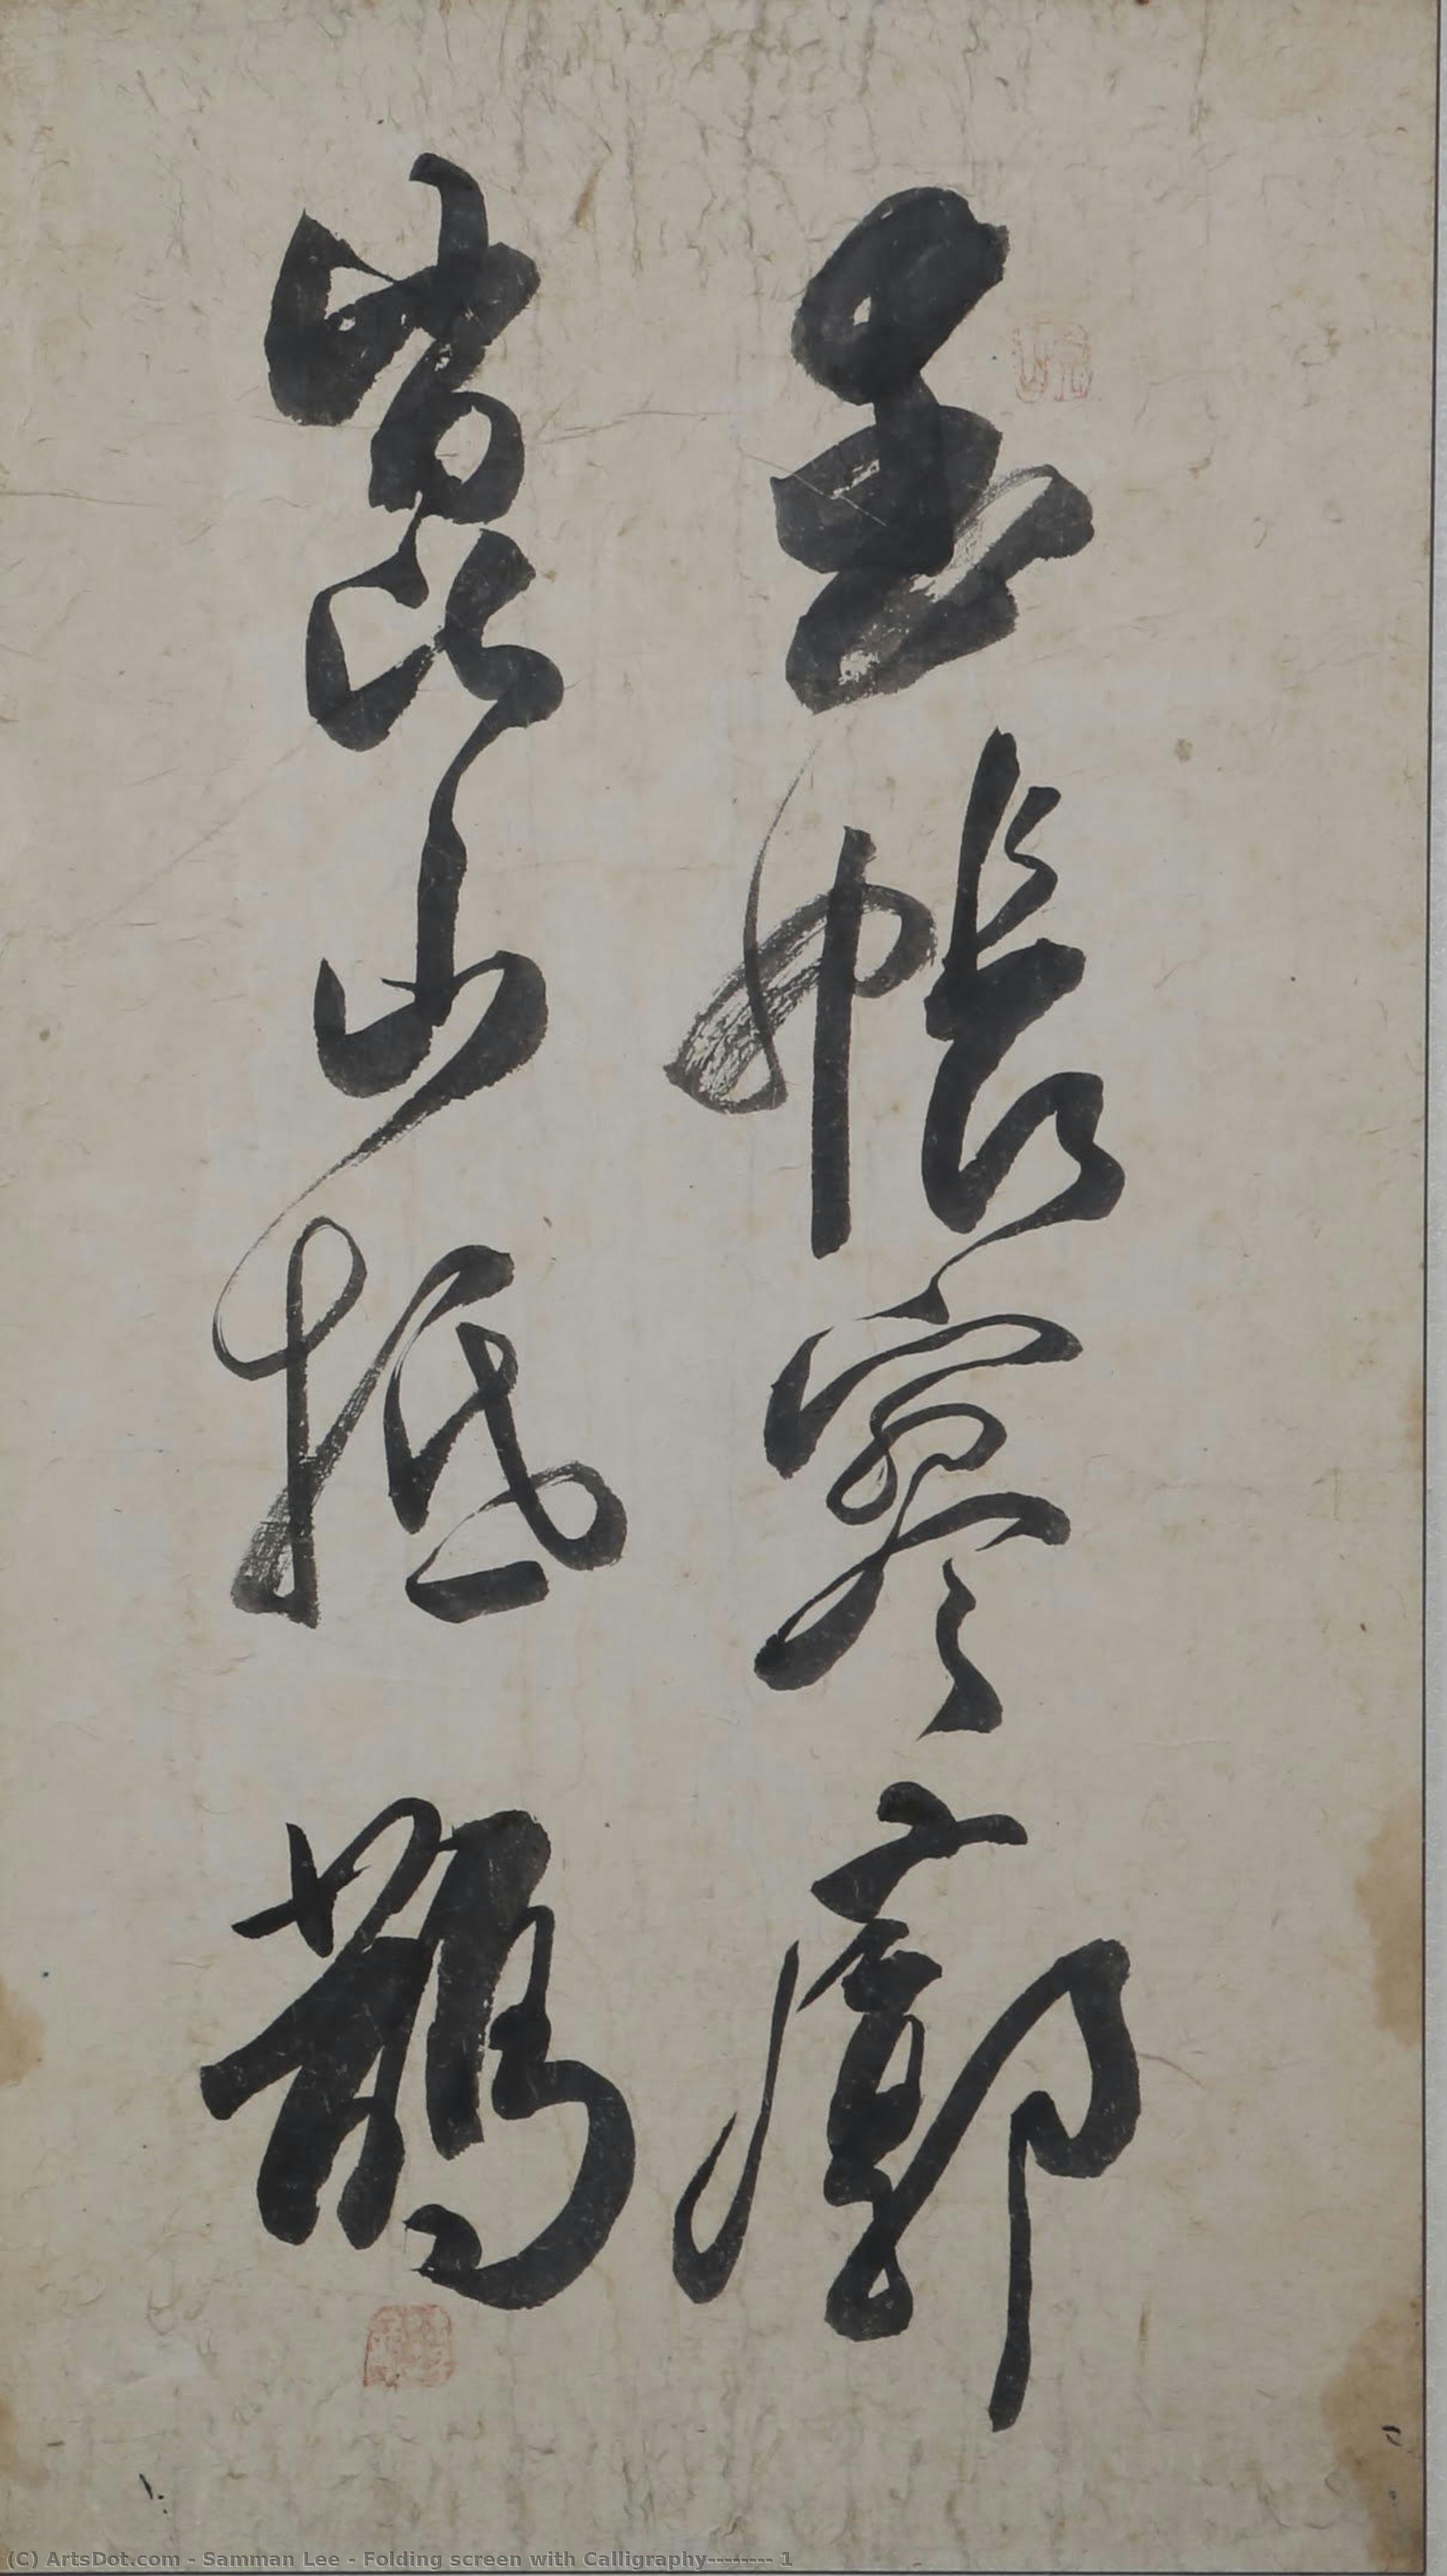 玉帳寥廓
崑山抵鵲
(C) ArtsDot.com - Samman Lee - Folding screen with Calligraphy-------- 1